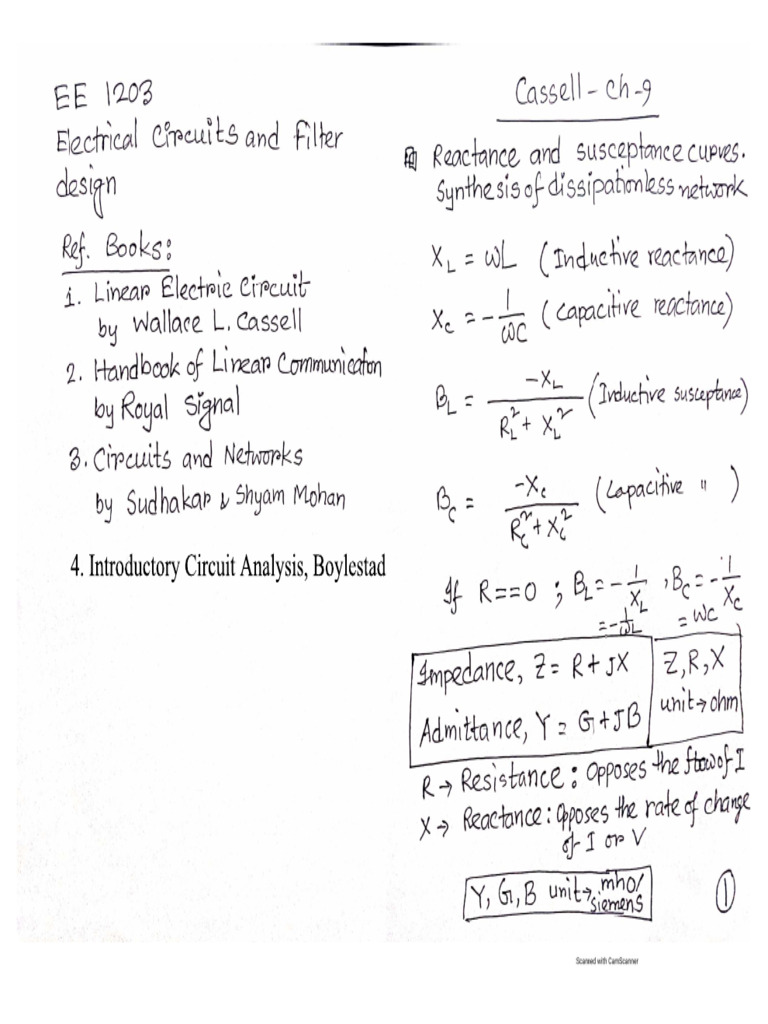 EE 1203
Electrical Circuits and Filter
design
Ref. Books:
1. Linear Electric Circuit
by Wallace L. Cassell
2. Handbook of Linear Communicaton
by Royal Signal
3. Circuits and Networks
by Sudhakar & Shyam Mohan
4. Introductory Circuit Analysis, Boylestad
Cassell - Ch-9
Reactance and susceptance curves.
Synthesis of dissipationless network
X_L = ωL (Inductive reactance)
X_C = -1/ωC (Capacitive reactance)
B_L = -X_L / (R_L² + X_L²) (Inductive susceptance)
B_C = -X_C / (R_C² + X_C²) (Capacitive " )
If R==0 ; B_L = -1/X_L , B_C = -1/X_C
= -1/ωL = ωC
Impedance, Z = R + JX
Admittance, Y = G + JB
Z, R, X
unit → ohm
R → Resistance: Opposes the flow of I
X → Reactance: Opposes the rate of change
of I or V
Y, G, B unit → mho/
siemens
1
Scanned with CamScanner